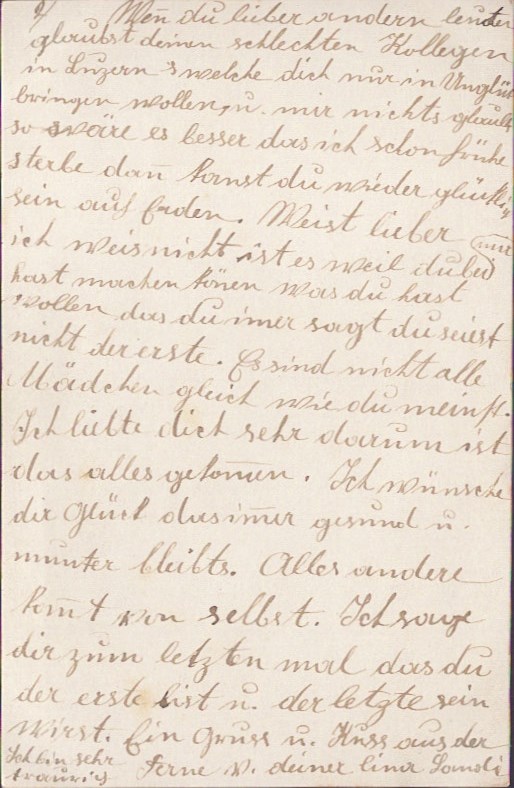 2/ Wen̄ du lieber andern leuten
glaubst deinen schlechten Kollegen
in Luzern welche dich nur in Unglük
bringen wollen, u. mir nichts glaubst
so wäre es besser das ich schon frühe
sterbe dan̄ kanst du wieder glükli
sein auf Erden. Weist lieber
ich weis nicht ist es weil du bei mir
hast machen könen was du hast
wollen das du imer sagt du seiest
nicht der erste. Es sind nicht alle
Mädchen gleich wie du meinst.
Ich liebte dich sehr darum ist
das alles gekom̄en. Ich wünsche
dir Glück das im̄er gesund u.
munter bleibts. Alles andere
kom̄t von selbst. Ich sage
dir zum letzten mal das du
der erste bist u. der letzte sein
wirst. Ein Gruss u. Kuss aus der
Ferne v. deiner
Ich bin sehr
traurig